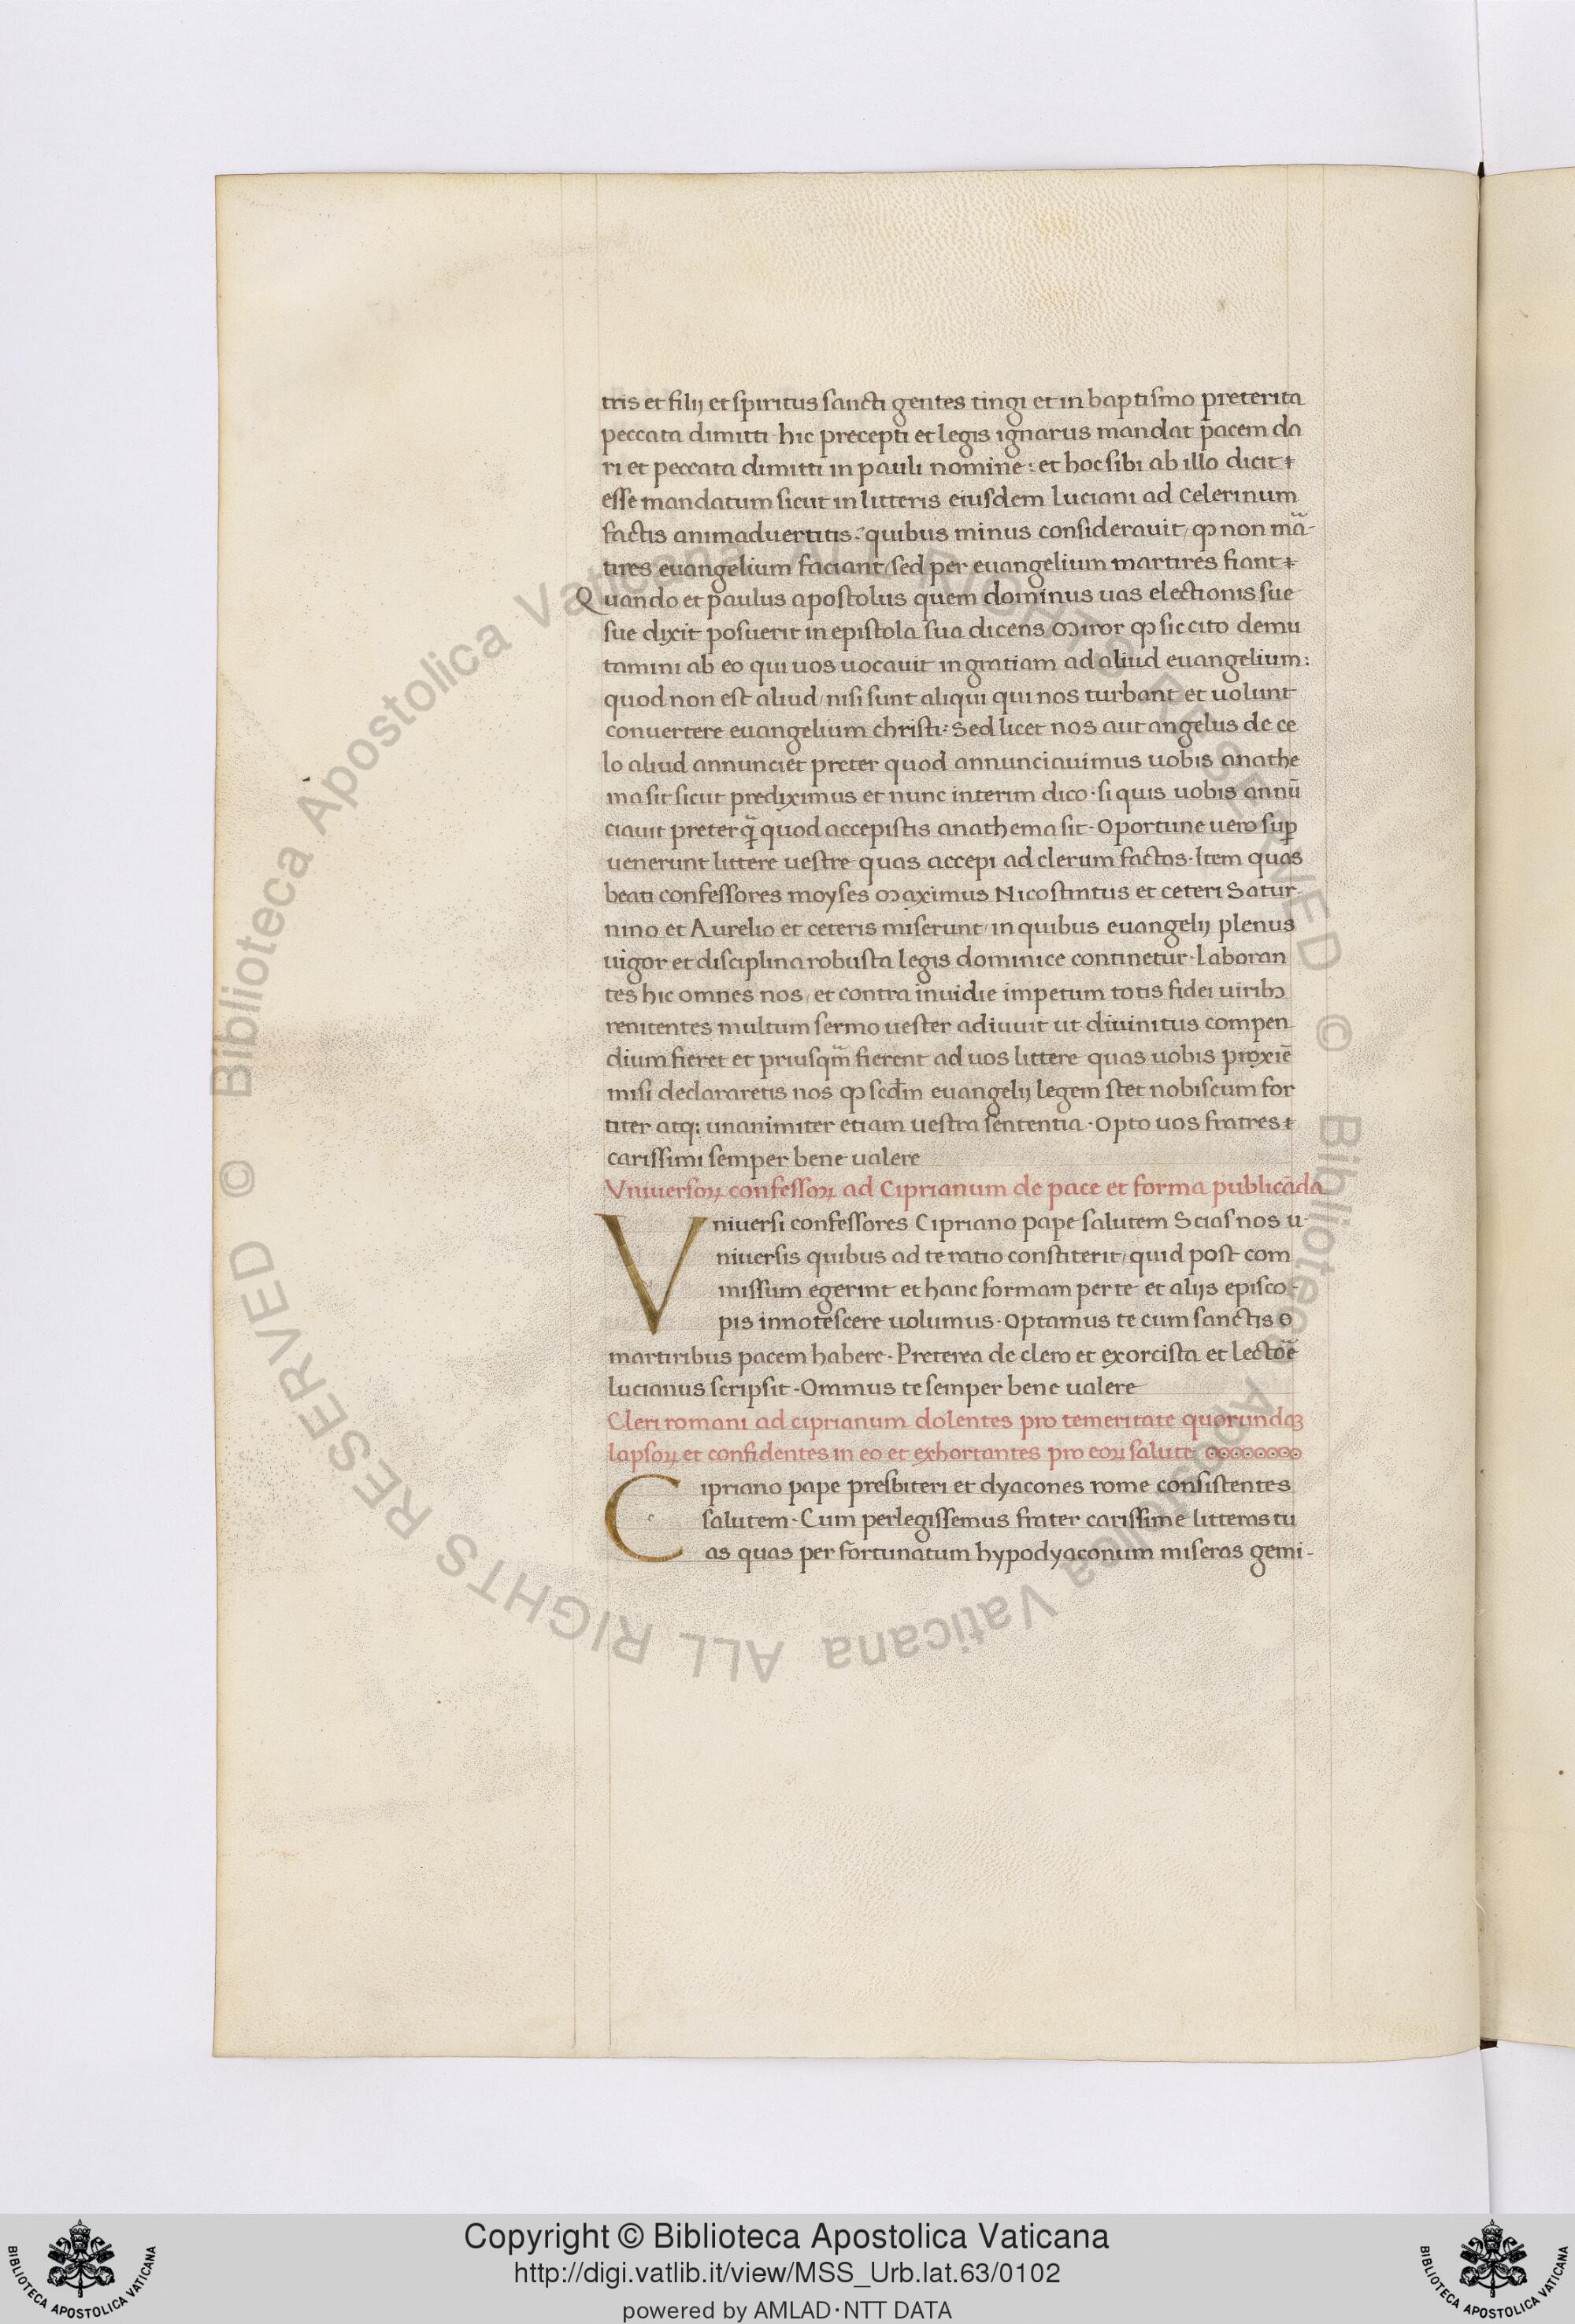 tris et filij et spiritus sancti gentes tingi et in baptismo preterita
peccata dimitti · hic precepti et legis ignarus mandat pacem da
ri et peccata dimitti in pauli nomine : et hoc sibi ab illo dicit
esse mandatum sicut in litteris eiusdem luciani ad Celerinum
factis animaduertitis · quibus minus considerauit / ꝙ non mã-
tires euangelium faciant / sed per euangelium martires fiant
Quando et paulus apostolus quem dominus uas electionis sue
sue dixit posuerit in epistola sua dicens Miror ꝙ sic cito demu
tamini ab eo qui uos uocauit in gratiam ad aliud euangelium :
quod non est aliud / nisi sunt aliqui qui nos turbant et uolunt
conuertere euangelium christi : Sed licet nos aut angelus de ce
lo aliud annunciet preter quod annunciauimus uobis anathe
ma sit sicut prediximus et nunc interim dico · si quis uobis annũ
ciauit preter q̃ quod accepistis anathema sit · Oportune uero suꝑ
uenerunt littere uestre quas accepi ad clerum factas · Item quas
beati confessores moyses Maximus Nicostratus et ceteri Satur-
nino et Aurelio et ceteris miserunt / in quibus euangelij plenus
uigor et disciplina robusta legis dominice continetur · Laboran
tes hic omnes nos / et contra inuidie impetum totis fidei uiribꝫ
renitentes multum sermo uester adiuuit ut diuinitus compen
dium fieret et priusqm̃ fierent ad uos littere quas uobis proxiẽ
misi declararetis nos ꝙ scdm̃ euangelij legem stet nobiscum for
titer atq; unanimiter etiam uestra sententia · Opto uos fratres
carissimi semper bene ualere
Vniuersoꝝ confessoꝝ ad Ciprianum de pace et forma publicãda
Vniuersi confessores Cipriano pape salutem Scias nos u-
niuersis quibus ad te ratio constiterit / quid post com
missum egerint et hanc formam per te et alijs episco-
pis innotescere uolumus · Optamus te cum sanctis o
martiribus pacem habere · Preterea de clero et exorcista et lectoẽ
lucianus scripsit · Ommus te semper bene ualere
Cleri romani ad ciprianum dolentes pro temeritate quorundaꝫ
lapsoꝝ et confidentes in eo et exhortantes pro eoꝝ salute
Cipriano pape presbiteri et dyacones rome consistentes
salutem · Cum perlegissemus frater carissime litteras tu
as quas per fortunatum hypodyaconum miseras gemi-
© Biblioteca Apostolica Vaticana ALL RIGHTS RESERVED © Biblioteca Apostolica Vaticana ALL RIGHTS RESERVED
Copyright © Biblioteca Apostolica Vaticana
http://digi.vatlib.it/view/MSS_Urb.lat.63/0102
powered by AMLAD·NTT DATA
BIBLIOTECA APOSTOLICA VATICANA
BIBLIOTECA APOSTOLICA VATICANA